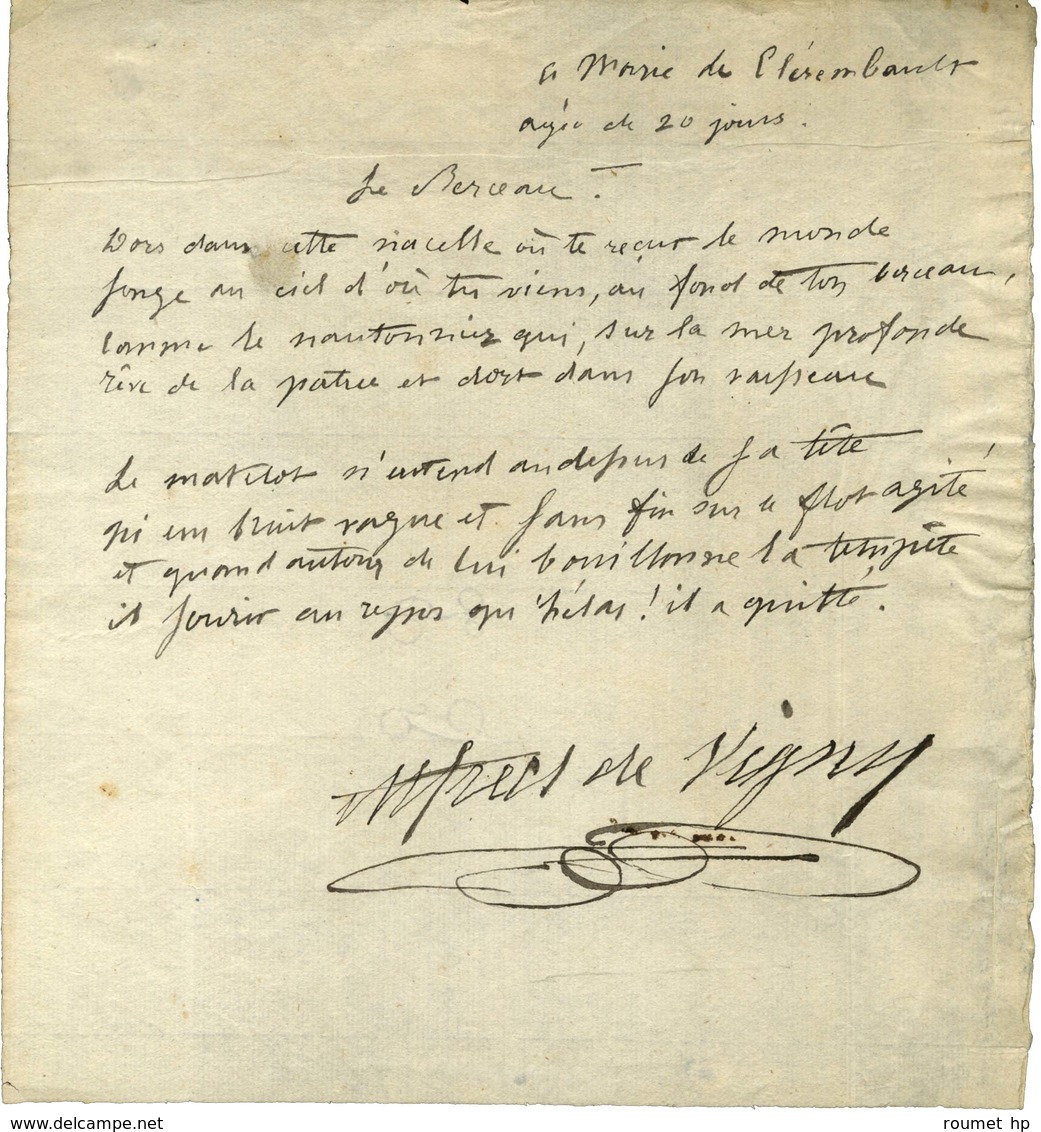 à Marie de Clérembault
agée de 20 jours.
Le Berceau.
Dors dans cette nacelle où te reçut le monde
songe au ciel d'où tu viens, au fond de ton berceau,
comme le nautonnier qui, sur la mer profonde
rêve de la patrie et dort dans son vaisseau
Le matelot n'entend audessus de sa tête
qu'un bruit vague et sans fin sur le flot agité
et quand autour de lui bouillonne la tempête
il sourit au repos qu'hélas! il a quitté.
Alfred de Vigny
roumet hp